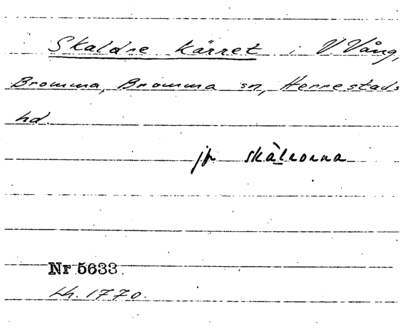 Skaldre kärret i V Vång,
Bromma, Bromma sn, Herrestads
hd.
jfr
Nr 5633.
Lh. 1770.